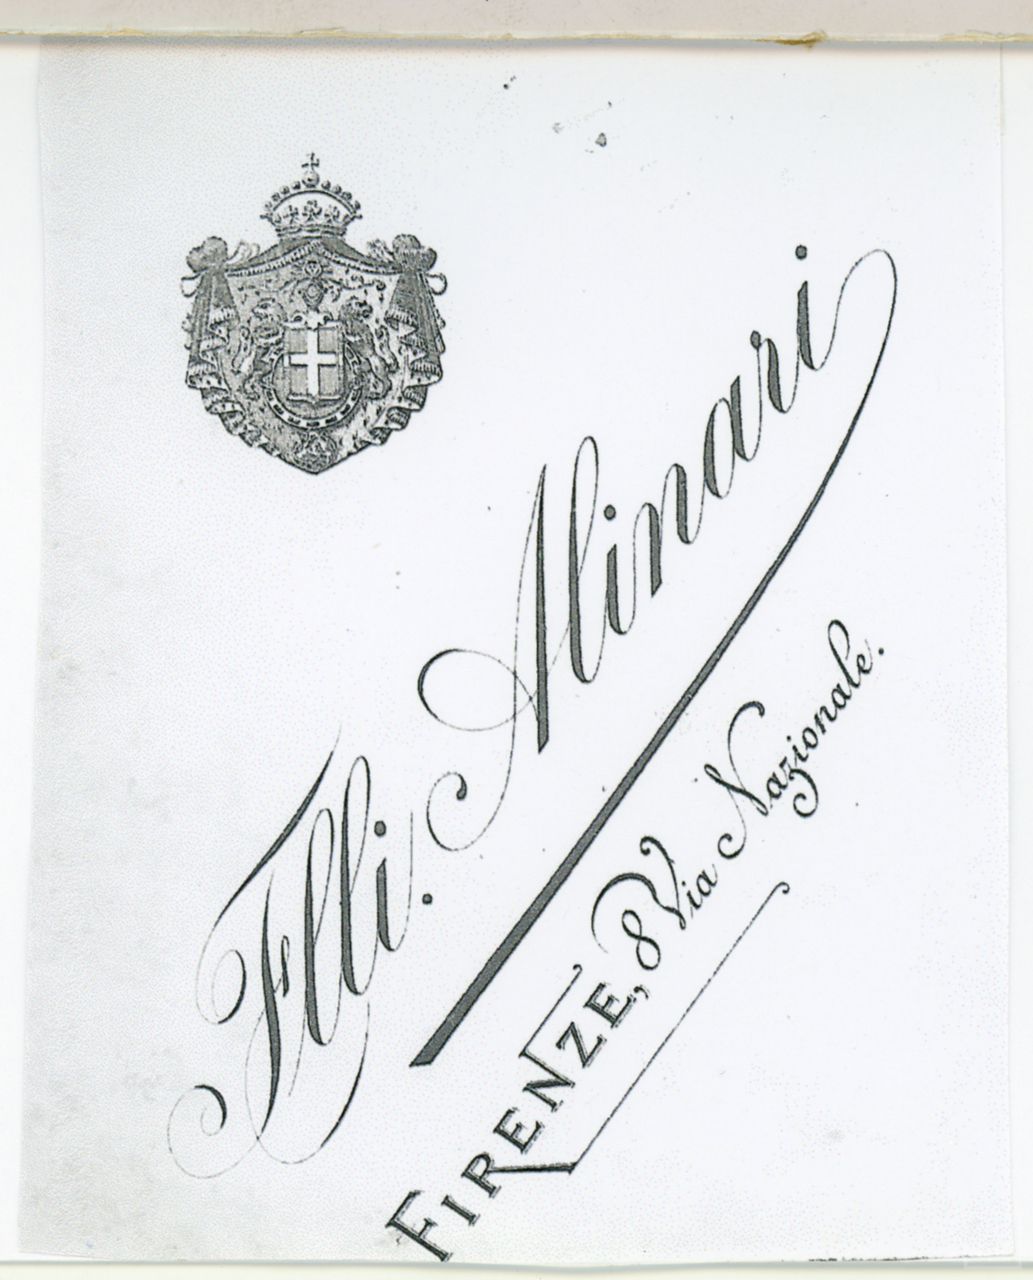 Flli. Alinari
FIRENZE, 8 Via Nazionale.